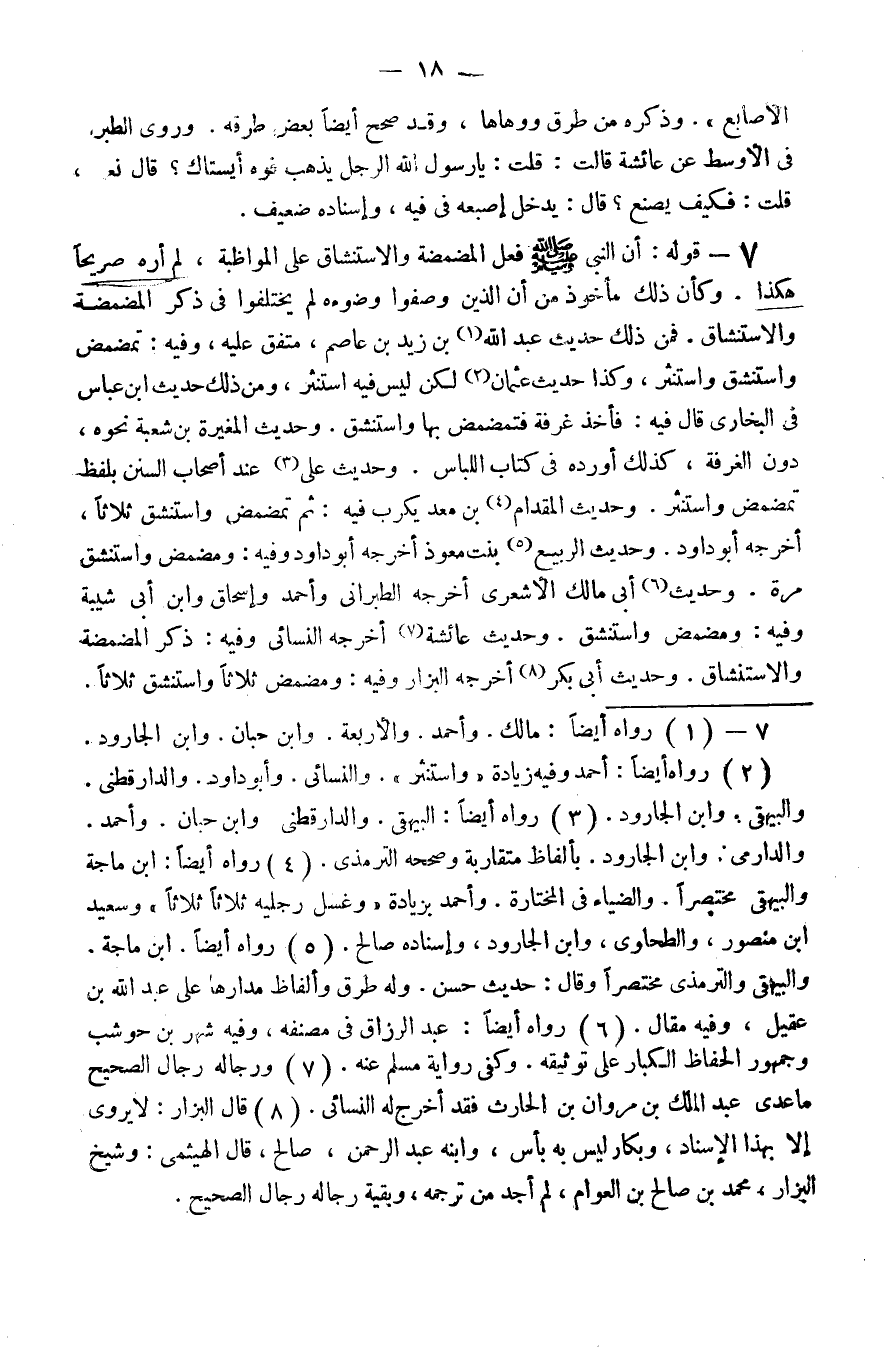 — ١٨ —
الأصابع » . وذكره من طرق ووهاها ، وقد صحح أيضاً بعض طرقه . وروى الطبر
فى الأوسط عن عائشة قالت : قلت : يارسول الله الرجل يذهب فوه أيستاك ؟ قال نعـ ،
قلت : فكيف يصنع ؟ قال : يدخل إصبعه فى فيه ، وإسناده ضعيف .
٧ — قوله : أن النبى ﷺ فعل المضمضة والاستنشاق على المواظبة ، لم أره صريحاً
هكذا . وكأن ذلك مأخوذ من أن الذين وصفوا وضوءه لم يختلفوا فى ذكر المضمضة
والاستنشاق . فمن ذلك حديث عبد الله(١) بن زيد بن عاصم ، متفق عليه ، وفيه : تمضمض
واستنشق واستنثر ، وكذا حديث عثمان(٢) لكن ليس فيه استنثر ، ومن ذلك حديث ابن عباس
فى البخارى قال فيه : فأخذ غرفة فتمضمض بها واستنشق . وحديث المغيرة بن شعبة نحوه ،
دون الغرفة ، كذلك أورده فى كتاب اللباس . وحديث على(٣) عند أصحاب السنن بلفظ
تمضمض واستنثر . وحديث المقدام(٤) بن معد يكرب فيه : ثم تمضمض واستنشق ثلاثاً ،
أخرجه أبو داود . وحديث الربيع(٥) بنت معوذ أخرجه أبو داود وفيه : ومضمض واستنشق
مرة . وحديث(٦) أبى مالك الأشعرى أخرجه الطبرانى وأحمد وإسحاق وابن أبى شيبة
وفيه : ومضمض واستنشق . وحديث عائشة(٧) أخرجه النسائى وفيه : ذكر المضمضة
والاستنشاق . وحديث أبى بكر(٨) أخرجه البزار وفيه : ومضمض ثلاثاً واستنشق ثلاثاً .
٧ — ( ١ ) رواه أيضاً : مالك . وأحمد . والأربعة . وابن حبان . وابن الجارود .
( ٢ ) رواه أيضاً : أحمد وفيه زيادة « واستنثر » . والنسائى . وأبو داود . والدارقطنى .
والبيهقى . وابن الجارود . ( ٣ ) رواه أيضاً : البيهقى . والدارقطنى وابن حبان . وأحمد .
والدارمى . وابن الجارود . بألفاظ متقاربة وصححه الترمذى . ( ٤ ) رواه أيضاً : ابن ماجة
والبيهقى مختصراً . والضياء فى المختارة . وأحمد بزيادة « وغسل رجليه ثلاثاً ثلاثاً » وسعيد
ابن منصور ، والطحاوى ، وابن الجارود ، وإسناده صالح . ( ٥ ) رواه أيضاً . ابن ماجة .
والبيهقى والترمذى مختصراً وقال : حديث حسن . وله طرق وألفاظ مدارها على عبد الله بن
عقيل ، وفيه مقال . ( ٦ ) رواه أيضاً : عبد الرزاق فى مصنفه ، وفيه شهر بن حوشب
وجمهور الحفاظ الكبار على توثيقه . وكفى رواية مسلم عنه . ( ٧ ) ورجاله رجال الصحيح
ماعدى عبد الملك بن مروان بن الحارث فقد أخرج له النسائى . ( ٨ ) قال البزار : لا يروى
إلا بهذا الإسناد ، وبكار ليس به بأس ، وابنه عبد الرحمن ، صالح ، قال الهيثمى : وشيخ
البزار ، محمد بن صالح بن العوام ، لم أجد من ترجمه ، وبقية رجاله رجال الصحيح .